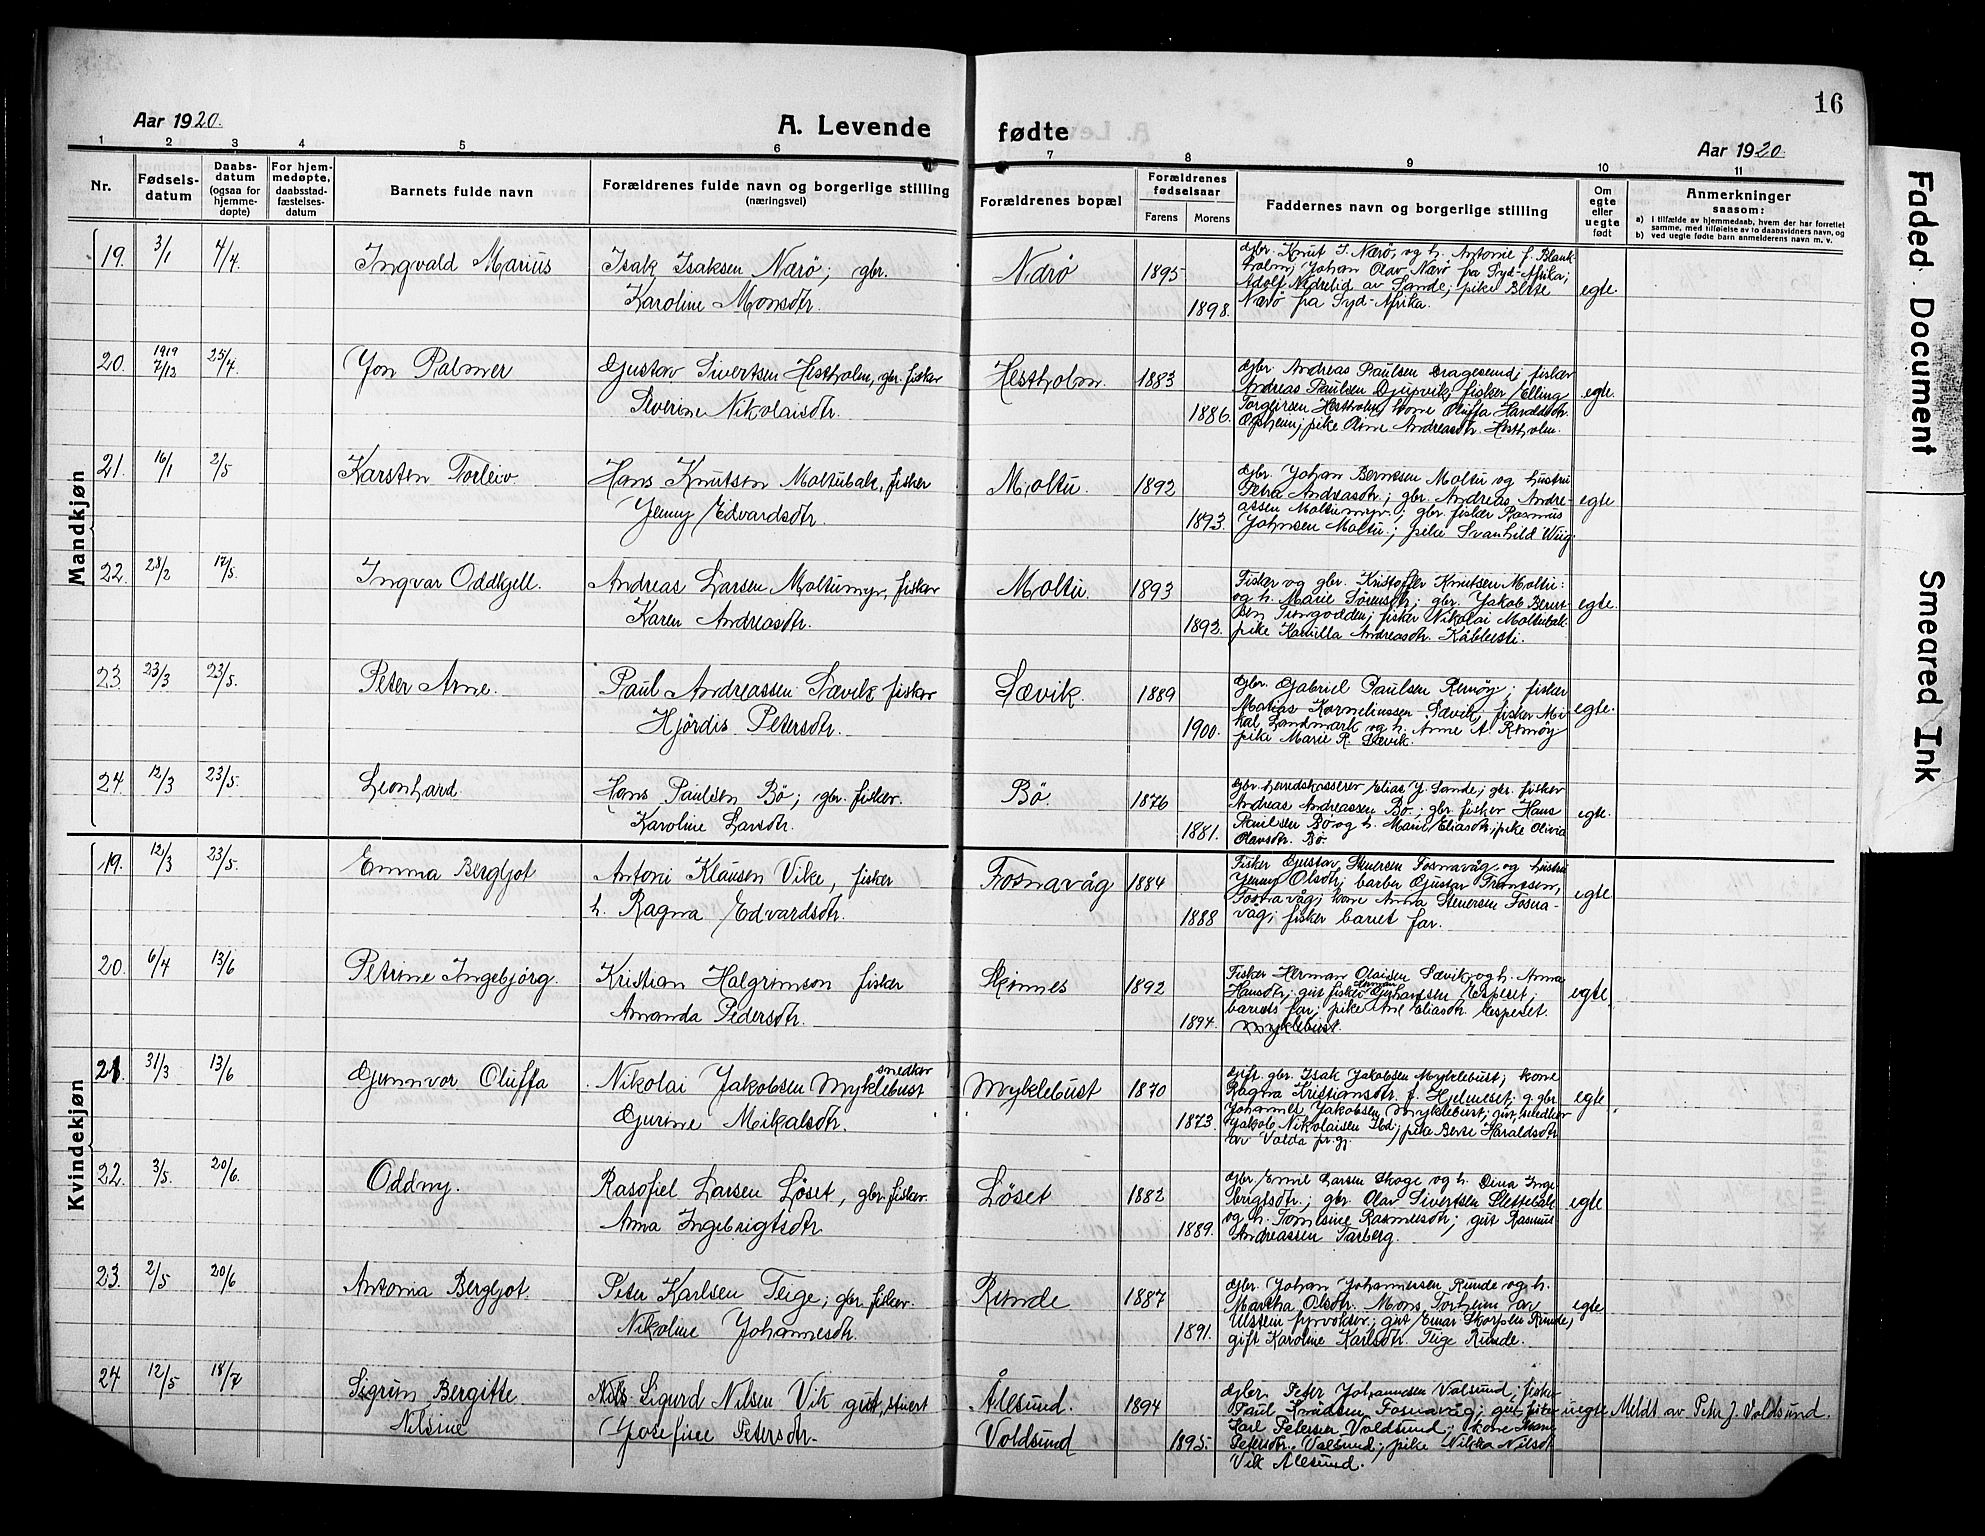 16
Aar 1920.
A. Levende fødte
Aar 1920.
1 2 3 4 5 6 7 8 9 10 11
Nr.
Fødsels-
datum
Daabs-
datum
(ogsaa for
hjemme-
døpte)
For hjem-
medøpte,
daabsstad-
fæstelses-
datum
Barnets fulde navn
Forældrenes fulde navn og borgerlige stilling
(næringsvei)
Forældrenes bopæl
Forældrenes
fødselsaar
Farens Morens
Faddernes navn og borgerlige stilling
Om
egte
eller
uegte
født
Anmerkninger
saasom:
a) I tilfælde av hjemmedaab, hvem der har forrettet
samme, med tilføielse av to daabsvidners navn, og
b) ved uegte fødte barn anmelderens navn m. v.
Mandkjøn
19. 3/1 4/4 Ingvald Marius Isak Isaksen Nærø; gbr. Nærø 1895 egte
Karoline Monsdtr. 1898.
gbr. Knut I. Nærø, og h. Antonie f. Blank-
holm; Johan Olav Nærø fra Syd-Afrika;
Adolf Nedrelid av Sande; pike Berte
Nærø fra Syd-Afrika.
20. 1919 7/12 25/4 Jon Palmer Gustav Sivertsen Hestholm, gbr. fisker Hestholm. 1883 egte.
Severine Nikolaisdtr. 1886.
gbr. Andreas Paulsen Dragesund; fisker
Andreas Paulsen Djupvik; fisker Elling
Torgersen Hestholm; kone Oluffa Haraldsdtr.
pike Andreasdtr. Hestholm.
21. 16/1 2/5 Karsten Torleiv Hans Knutsen Moltubak, fisker Moltu. 1892 egte
Jenny Edvardsdtr. 1893.
gbr. Johan Berntsen Moltu og hustru
Petra Andreasdtr.; gbr. Andreas Andre-
assen Moltumyr.; gbr. fisker Rasmus
Johnsen Moltu.; pike Svanhild Wiig
22. 28/2 17/5. Ingvar Oddkjell. Andreas Larsen Moltumyr, fisker Moltu 1893 egte.
Karen Andreasdtr. 1892.
Fisker og gbr. Kristoffer Knutsen Moltu:
og h. Marie Sørensdtr; gbr. Jakob Bernt-
sen fisker Nikolai Moltubak
pike Kamilla Andreasdtr.
23. 23/3 23/5. Peter Arne. Paul Andreassen Sævik fisker Sævik. 1889 egte.
Hjørdis Petersdtr. 1900.
gbr. Gabriel Paulsen Remøy; fisker
Matias Korneliussen Sævik, fisker Mi-
kal Landmark og h. Anne A. Remøy
pike Marie R. Sævik.
24. 12/3 23/5. Leonhard. Hans Paulsen Bø; gbr. fisker. Bø. 1876 egte.
Karoline Larsdtr. 1881.
gbr. herredskasserer Elias J. Sande; gbr. fisker
Andreas Andreassen Bø; gbr. fisker Hans
Paulsen Bø og h. Marie Eliasdtr; pike Olivia
Olavsdtr. Bø.
Kvindekjøn
19. 12/3 23/5. Emma Bergljot Antoni Klausen Vike, fisker Fosnavåg 1884 egte
h. Ragna Edvardsdtr. 1888
Fisker Gustav Fosnavåg og hustru
Jenny Olsdtr; barber Gustav Frantsen,
Fosnavåg; kone Anna Fosna-
våg; fisker barnet far.
20. 6/4 13/6 Petrine Ingebjørg. Kristian Halgrimson fisker Skinnes 1892 egte
Amanda Pedersdtr. 1894.
Fisker Herman Olaisen Sævik og h. Anna
Hansdtr; gut fisker Herman Gerhardsen Espeset;
barnets far; pike Ane Eliasdtr. Espeset.
Myklebust.
21. 31/3 13/6 Gunnvor Oluffa Nikolai Jakobsen Myklebust snedker Myklebust 1870 egte
Gurine Mikalsdtr. 1873.
Gift gbr. Isak Jakobsen Myklebust; kone
Ragna Kristiansdtr. f. Hjelmeset; g. gbr.
Johannes Jakobsen Myklebust; gut, snedker
Jakob Nikolaisen Ibd; pike Berte Haraldsdtr
av Volda pr.gj.
22. 3/5. 20/6. Oddny. Rasofiel Larsen Løset, gbr. fisker. Løset 1882 egte
Anna Ingebrigtsdtr 1889.
gbr. Emil Larsen Skoge og h. Dina Inge
brigtsdtr.; gbr. Olav Sivertsen Slettebak
og h. Tomesine Rasmusdtr; gut Rasmus
Andreassen Tarberg.
23. 2/5 20/6 Antonia Bergljot. Peter Karlsen Teige; gbr. fisker. Runde 1887 egte
Nikoline Johannesdtr. 1891.
gbr. Johan Johannessen Runde og h.
Martha Olsdtr. Mons Torheim av
Ulstein fyrvokter; gut Einar Skorpen Runde,
gift Karoline Karlsdtr. Teige Runde.
24 12/5 18/7 Sigrun Bergitte Nils Sigurd Nilsen Vik gut, stuert Ålesund. 1894 uegte Meldt av Peter J. Voldsund.
Nilsine Josefine Petersdtr. Voldsund 1895.
gbr. Peter Johannesen Valsund; fisker
Paul Knudsen Fosnavåg; gut, fisker
Karl Petersen Voldsund; kone
Petersdtr. Valsund; pike Nikka Nilsdtr
Vik Ålesund.
Faded Document
Smeared Ink